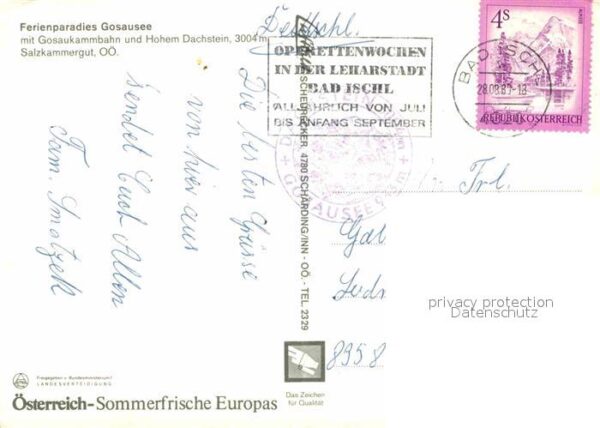 Ferienparadies Gosausee
mit Gosaukammbahn und Hohem Dachstein, 3004 m
Salzkammergut, OÖ.
Die besten Grüsse
von hier aus
sendet Euch Allen
Fam. Smotzek
Freigegeben v. Bundesministerium f.
LANDESVERTEIDIGUNG
Österreich-Sommerfrische Europas
SCHEURECKER, 4780 SCHÄRDING/INN - OÖ. - TEL. 2329
Das Zeichen
für Qualität
Deutschl.
OPERETTENWOCHEN
IN DER LEHARSTADT
BAD ISCHL
ALLJÄHRLICH VON JULI
BIS ANFANG SEPTEMBER
BAD ISCHL
4S
REPUBLIK ÖSTERREICH
GOSAUSEE
Frl.
Gat
8958
privacy protection
Datenschutz